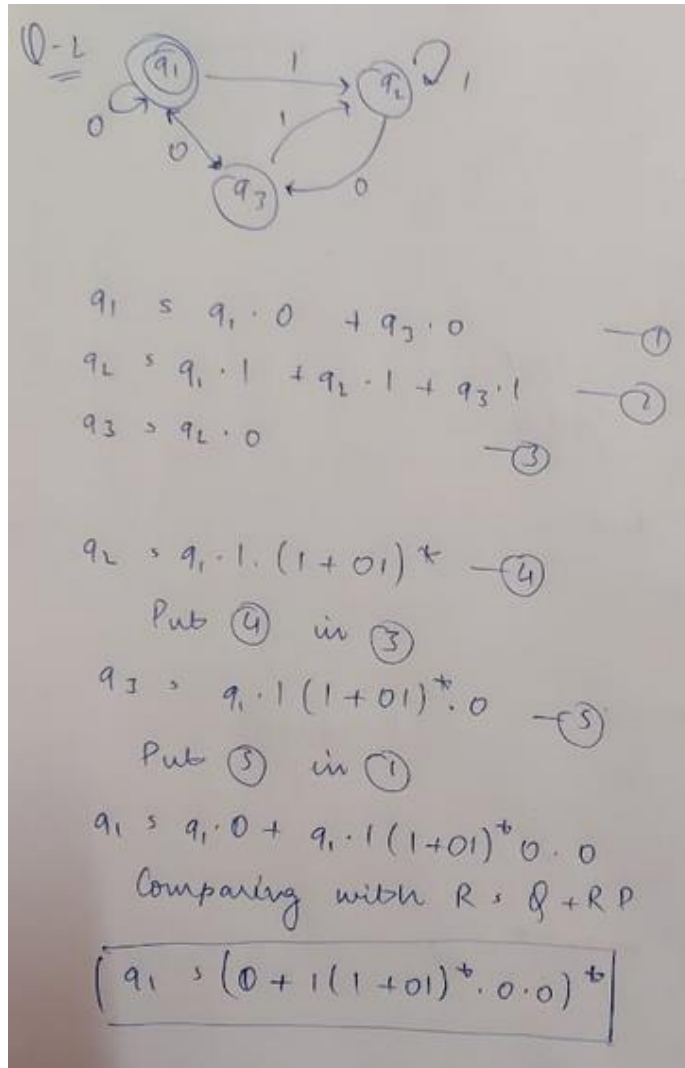 Q-2
q1 1 q2 1
0 0 1
q3 0
q1 = q1 . 0 + q3 . 0 —①
q2 = q1 . 1 + q2 . 1 + q3 . 1 —②
q3 = q2 . 0 —③
q2 = q1 . 1 . (1 + 01)* —④
Put ④ in ③
q3 = q1 . 1 (1 + 01)* . 0 —⑤
Put ⑤ in ①
q1 = q1 . 0 + q1 . 1 (1+01)* 0 . 0
Comparing with R = Q + RP
q1 = (0 + 1(1 + 01)* . 0 . 0)*